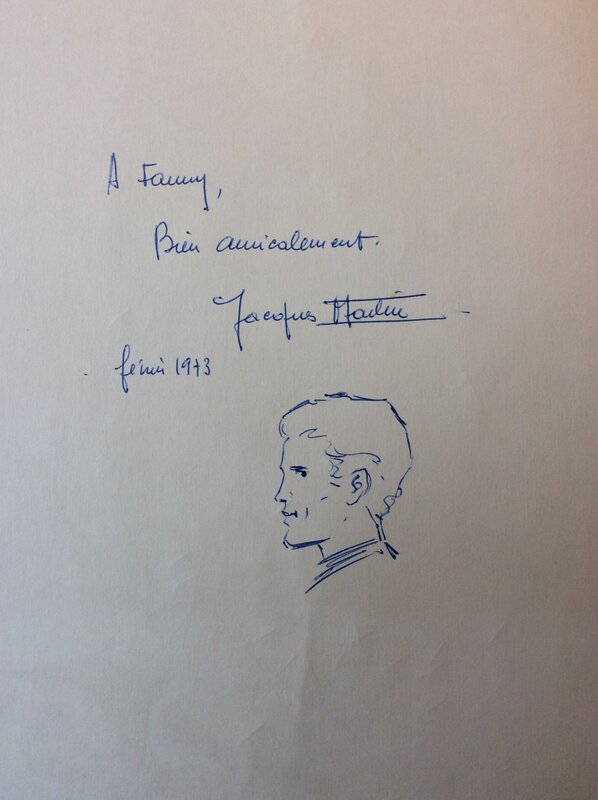 A Fanny,
Bien amicalement.
Jacques Martin
février 1973